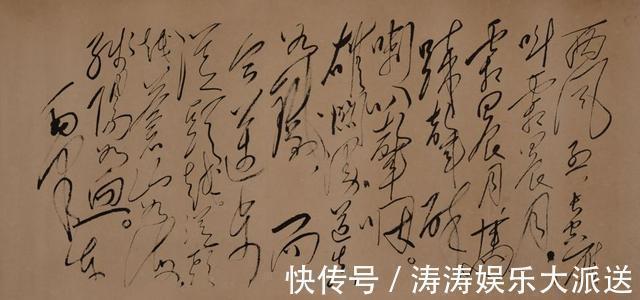 西风烈长空雁
叫霜晨月。
霜晨月马
蹄声碎
喇叭声咽。
雄关漫道真
如铁而
今迈步
从头越从头
越苍山如海
残阳如血。
快传号 / 涛涛娱乐大派送